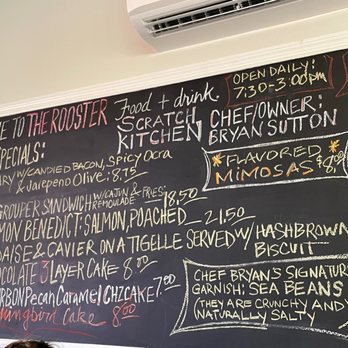 E TO THE ROOSTER
SPECIALS:
ARY W/CANDIED BACON, SPICY OCRA
& JALEPENO OLIVE: 8.75
Food + drink.
SCRATCH
KITCHEN
CHEF/OWNER:
BRYAN SUTTON
OPEN DAILY:
7:30-3:00pm
*FLAVORED*
MIMOSAS
GROUPER SANDWICH W/CAJUN & FRIES 18.50
REMOULADE
MON BENEDICT: SALMON, POACHED - 21.50
DAISE & CAVIER ON A TIGELLE SERVED W/ HASHBROWN
BISCUIT
COLATE 3 LAYER CAKE 8.00
RBON Pecan Caramel CHZCAKE 7.00
Hummingbird Cake 8.00
CHEF BRYAN'S SIGNATUR
GARNISH: SEA BEANS
(THEY ARE CRUNCHY AND
NATURALLY SALTY